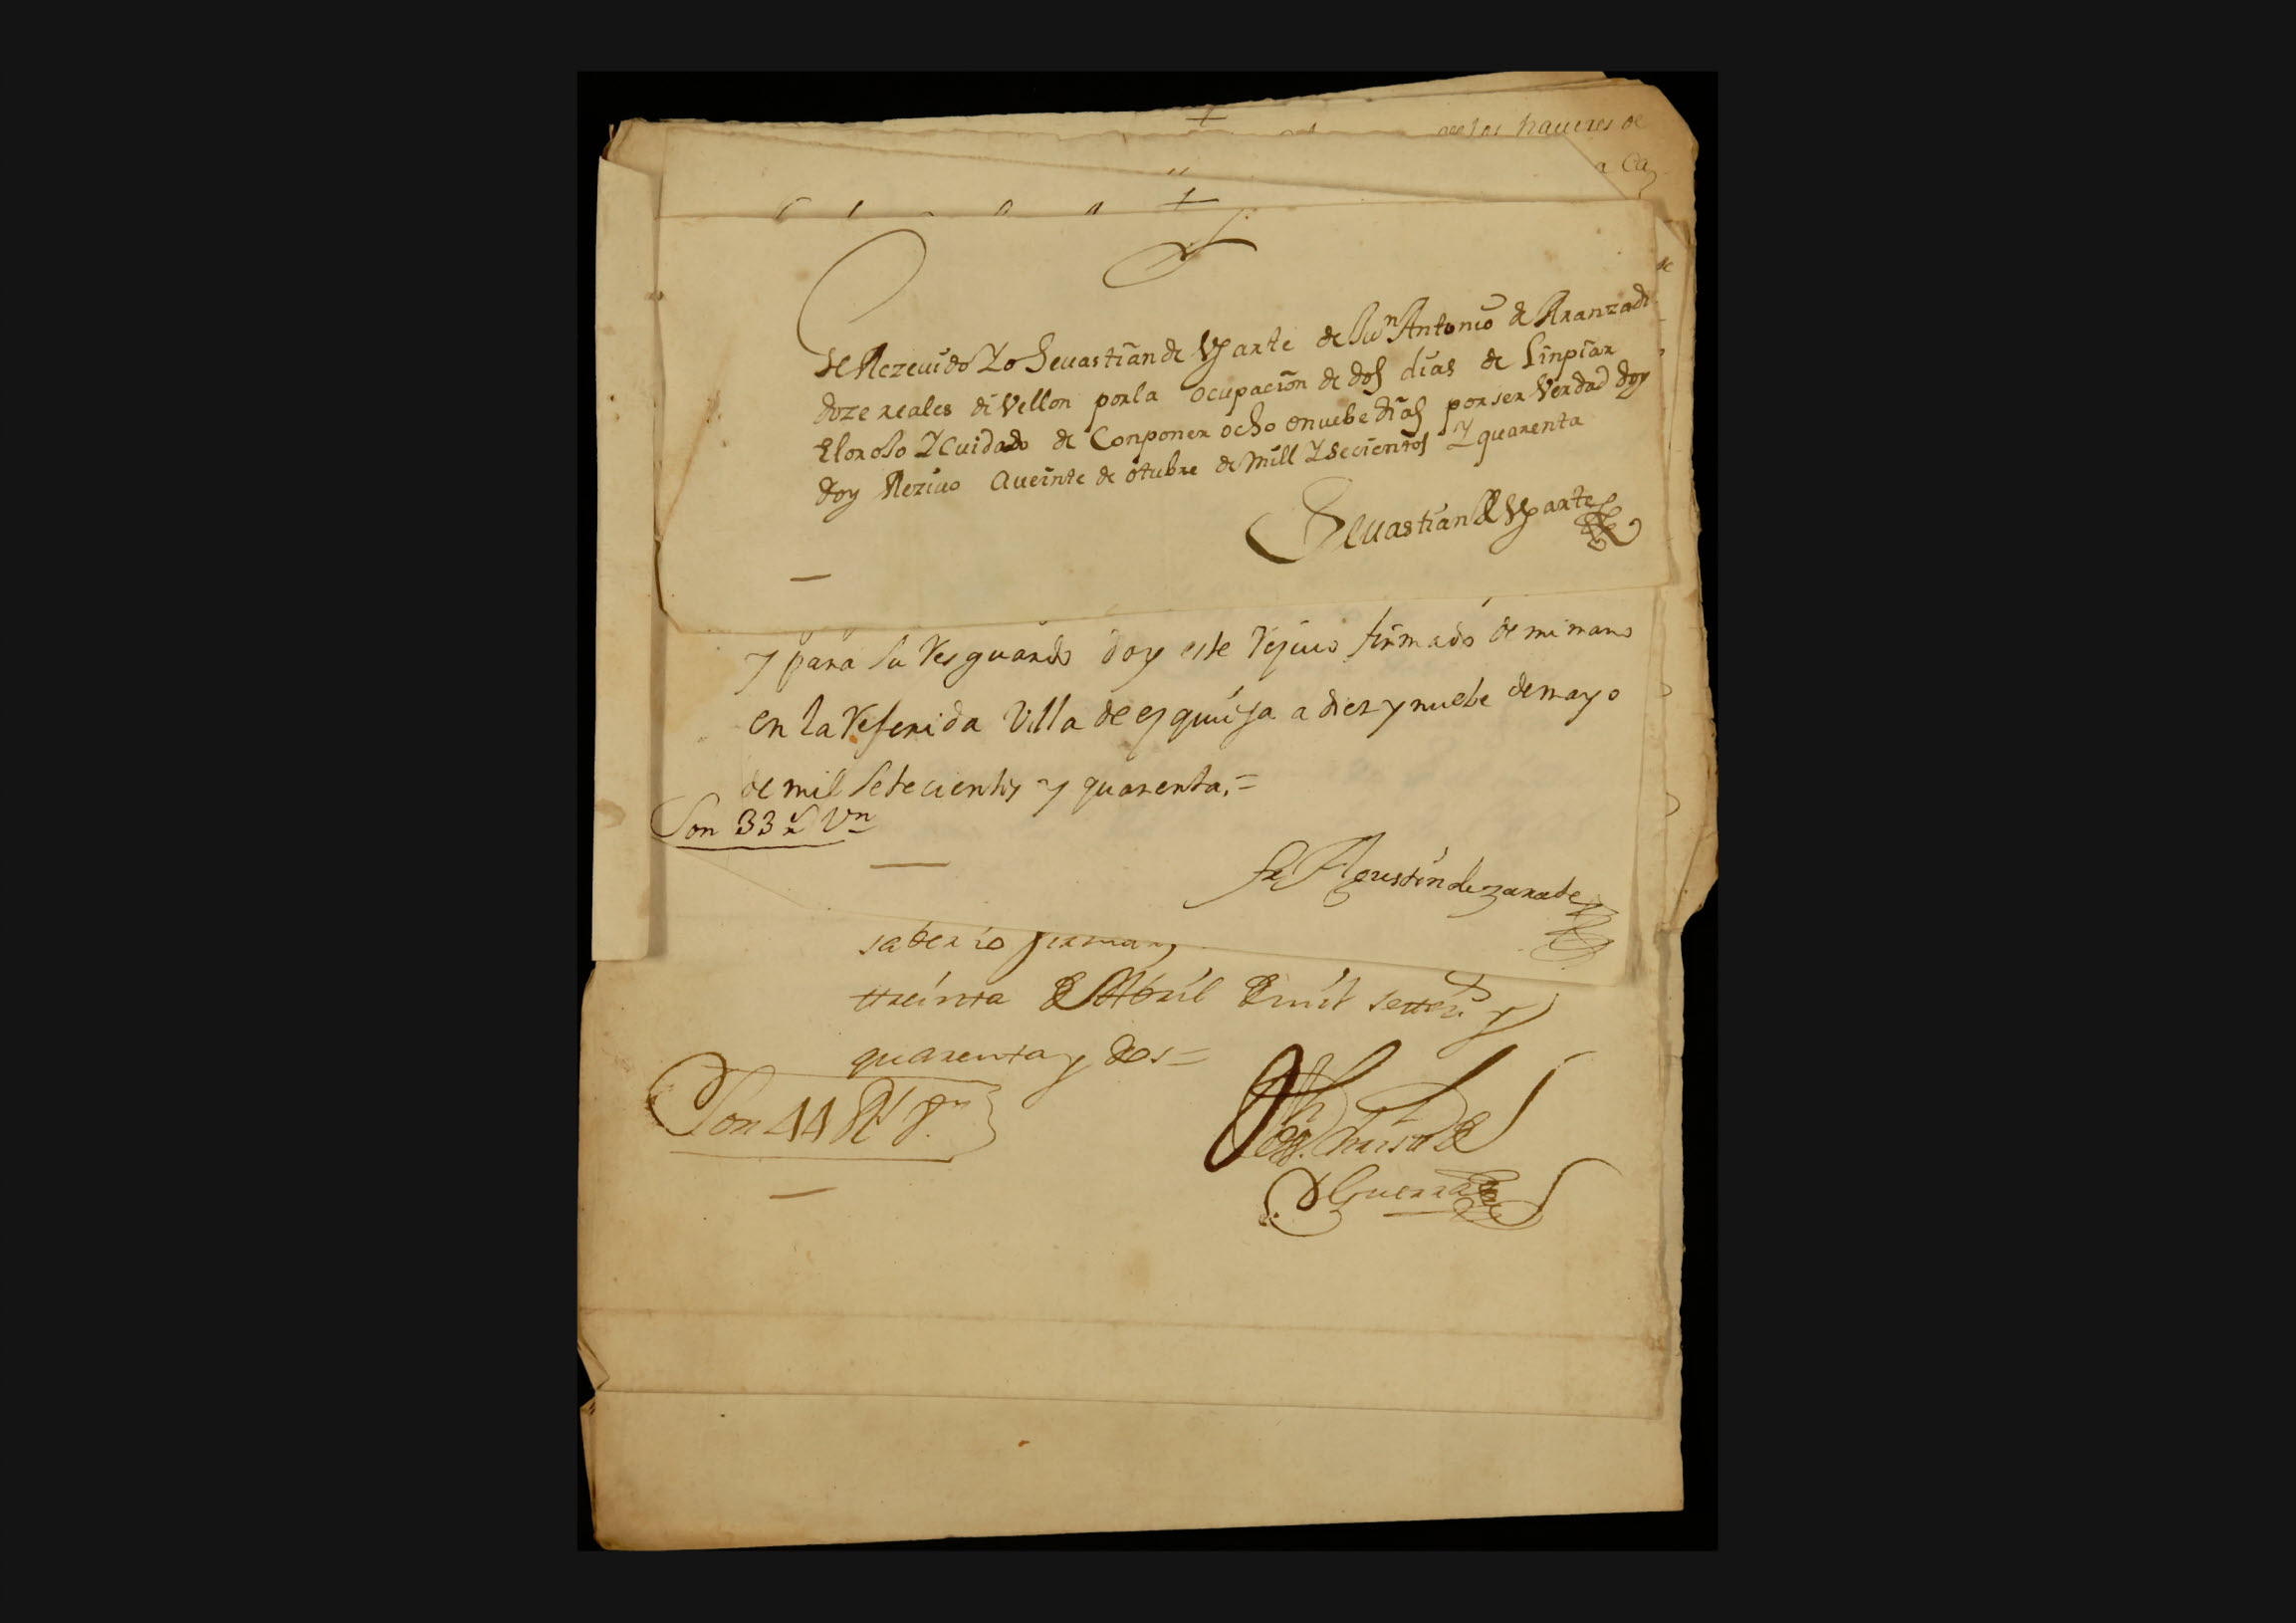 de los haueres de
a Ca
de
He Rezeuido Yo Seuastian de Vgarte de Jun Antonio de Aranzadi
doze reales de Vellon por la ocupacion de dos dias de linpiar
El oroso Y Cuidado de Conponer ocho o nuebe dias por ser Verdad doy
doy Reziuo a veinte de otubre de mill Y secientos Y quarenta
Seuastian de Vgarte
y para su Resguardo doy este Reziuo firmado de mi mano
en la Referida Villa de ezquioga a diez y nuebe de mayo
de mil setecientos y quarenta,=
Son 33 rs Vn
fr Agustin de zarate
saber io firmar,
treinta de Abril de mil setezs y
quarenta y dos=
Son 44 Rs Vn
de Guerra